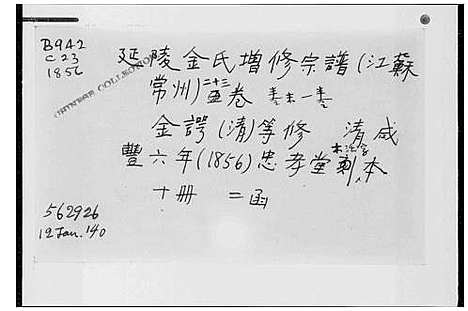 B9A2
C23
1856
CHINESE COLLECTION
延陵金氏增修宗譜(江蘇
常州)二十三卷 卷末一卷
金諤(清)等修 清咸
豐六年(1856)忠孝堂木活字本
十冊 二函
562926
12 Jan. '40